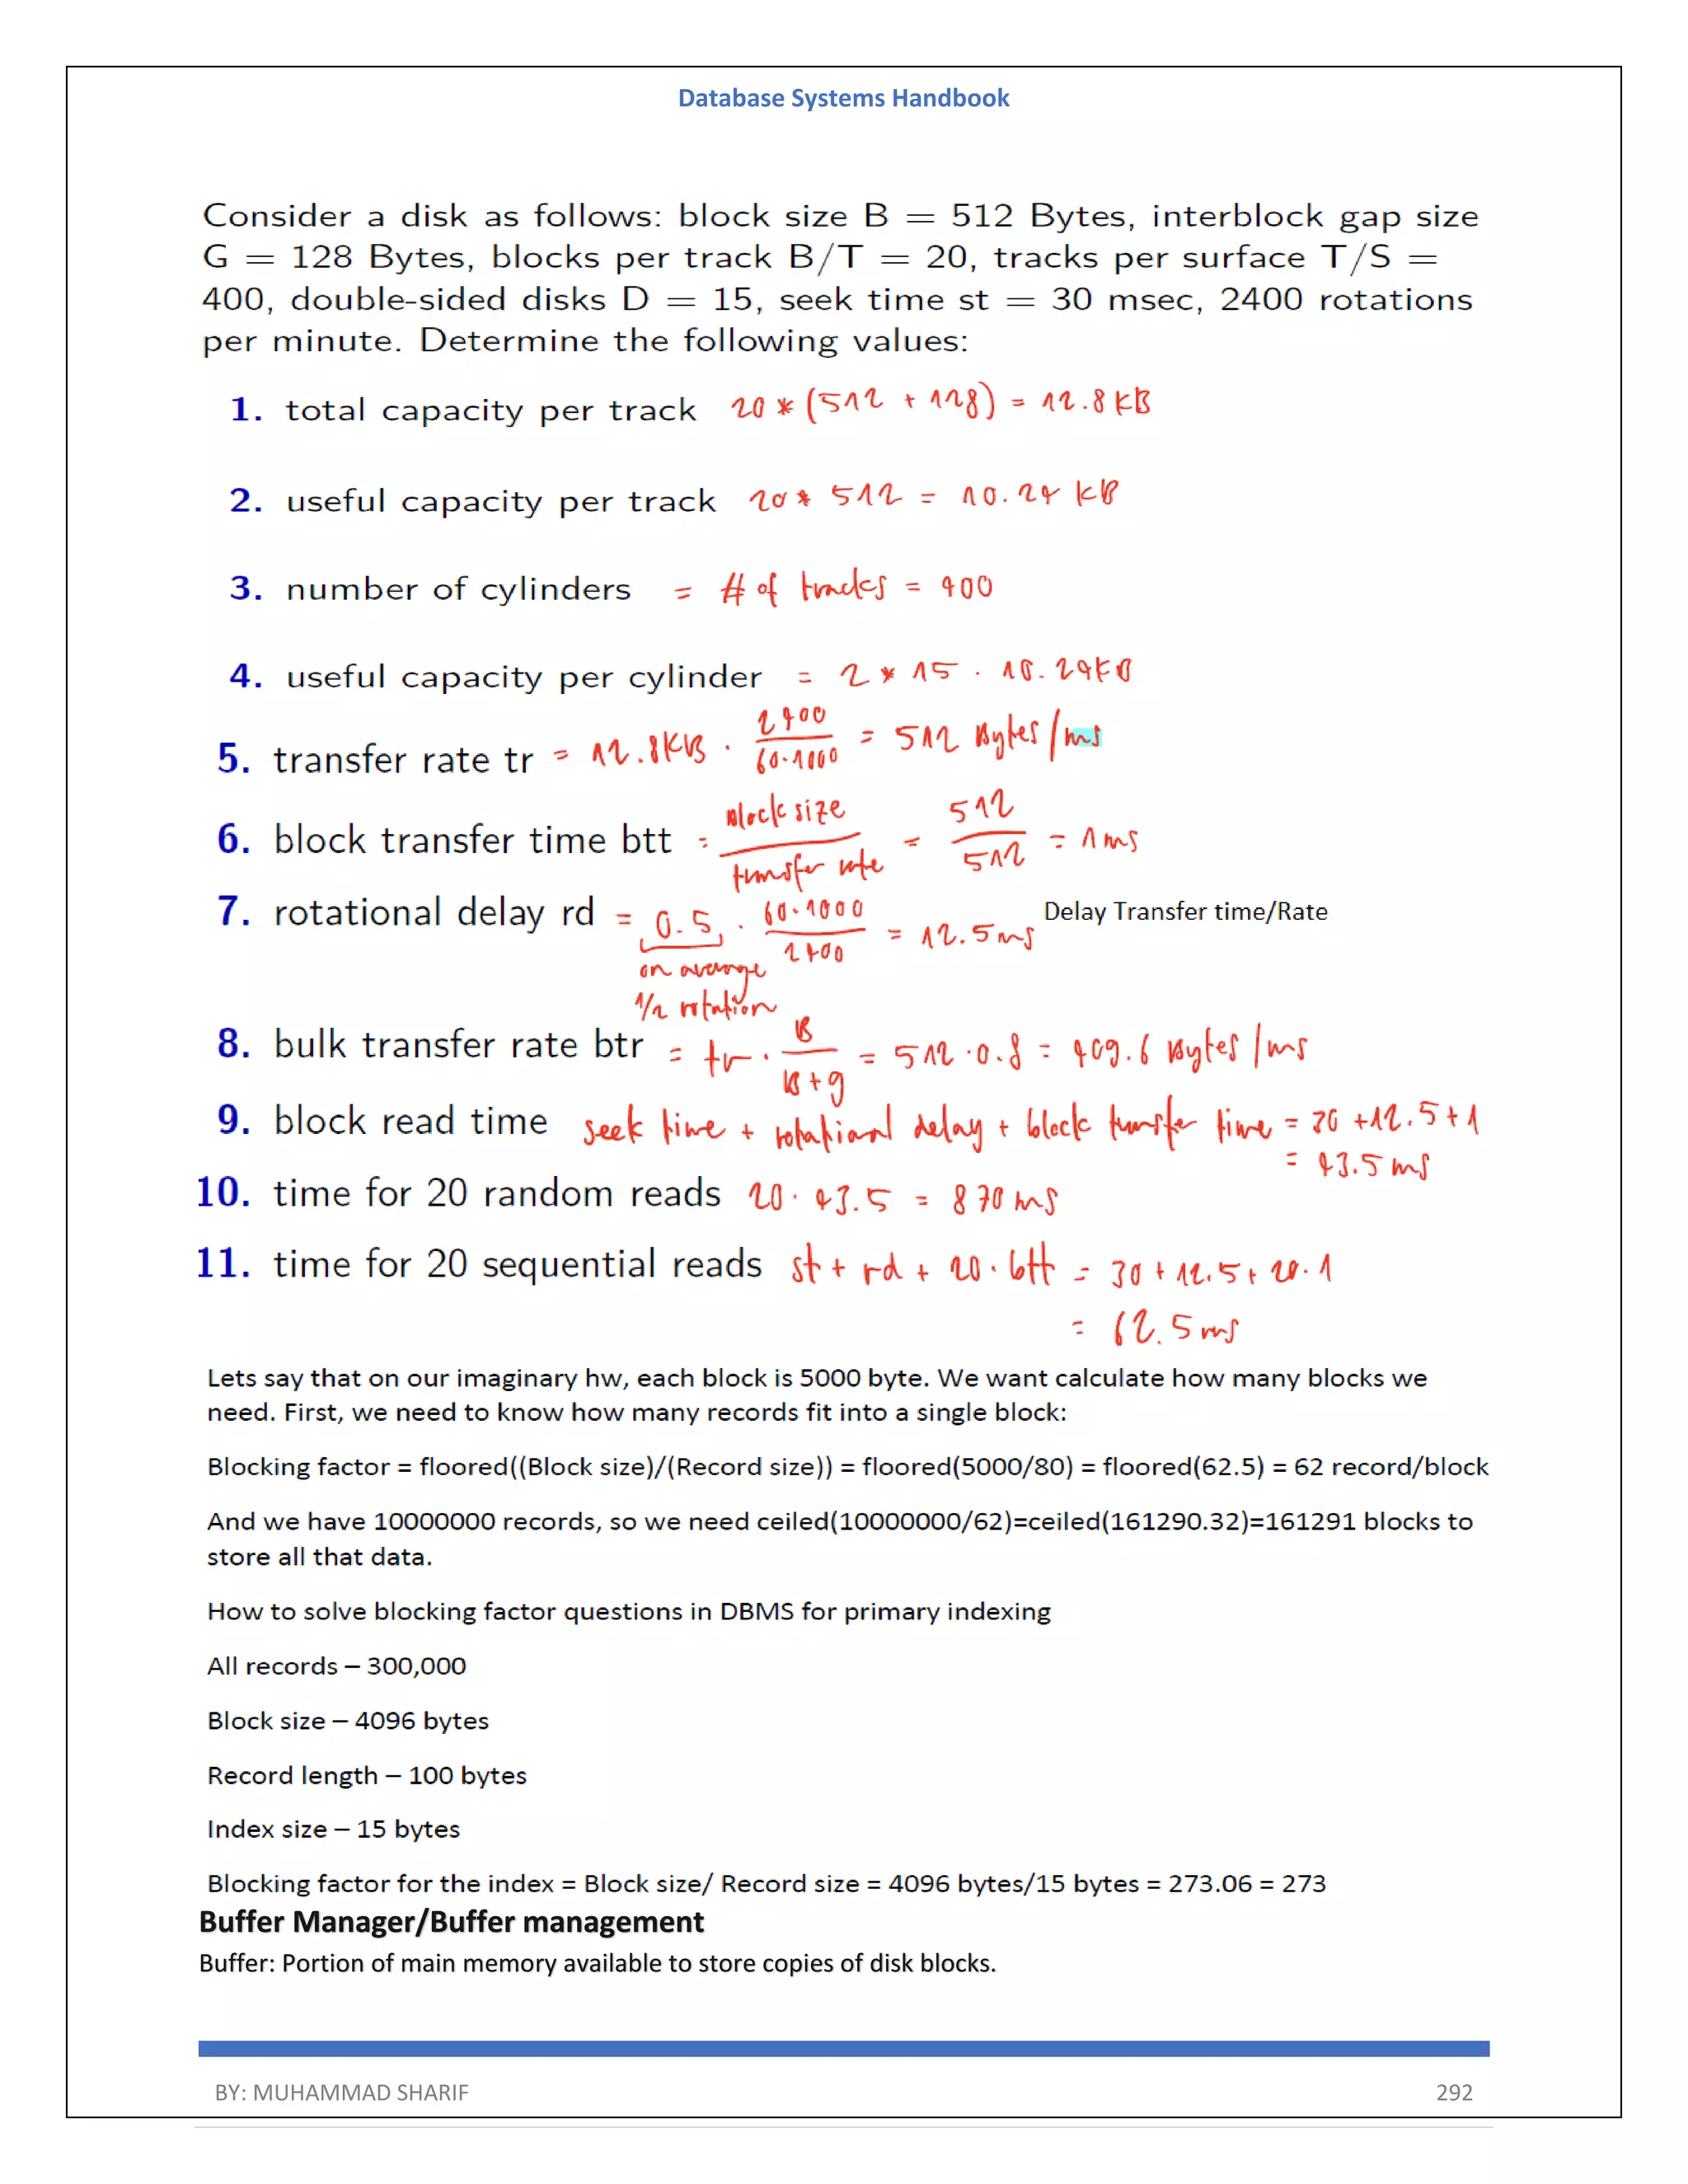 Database Systems Handbook
Consider a disk as follows: block size B = 512 Bytes, interblock gap size
G = 128 Bytes, blocks per track B/T = 20, tracks per surface T/S =
400, double-sided disks D = 15, seek time st = 30 msec, 2400 rotations
per minute. Determine the following values:
1. total capacity per track 20 * (512 + 128) = 12.8 KB
2. useful capacity per track 20 * 512 = 10.24 KB
3. number of cylinders = # of tracks = 400
4. useful capacity per cylinder = 2 * 15 · 10.24 KB
5. transfer rate tr = 12.8KB · 2400 / 60·1000 = 512 Bytes/ms
6. block transfer time btt = Block size / transfer rate = 512 / 512 = 1 ms
7. rotational delay rd = 0.5 · 60·1000 / 2400 = 12.5 ms Delay Transfer time/Rate
on average
1/2 rotation
8. bulk transfer rate btr = tr · B / B+g = 512 · 0.8 = 409.6 Bytes/ms
9. block read time seek time + rotational delay + block transfer time = 30 + 12.5 + 1
= 43.5 ms
10. time for 20 random reads 20 · 43.5 = 870 ms
11. time for 20 sequential reads st + rd + 20 · btt = 30 + 12.5 + 20 · 1
= 62.5 ms
Lets say that on our imaginary hw, each block is 5000 byte. We want calculate how many blocks we
need. First, we need to know how many records fit into a single block:
Blocking factor = floored((Block size)/(Record size)) = floored(5000/80) = floored(62.5) = 62 record/block
And we have 10000000 records, so we need ceiled(10000000/62)=ceiled(161290.32)=161291 blocks to
store all that data.
How to solve blocking factor questions in DBMS for primary indexing
All records – 300,000
Block size – 4096 bytes
Record length – 100 bytes
Index size – 15 bytes
Blocking factor for the index = Block size/ Record size = 4096 bytes/15 bytes = 273.06 = 273
Buffer Manager/Buffer management
Buffer: Portion of main memory available to store copies of disk blocks.
BY: MUHAMMAD SHARIF 292